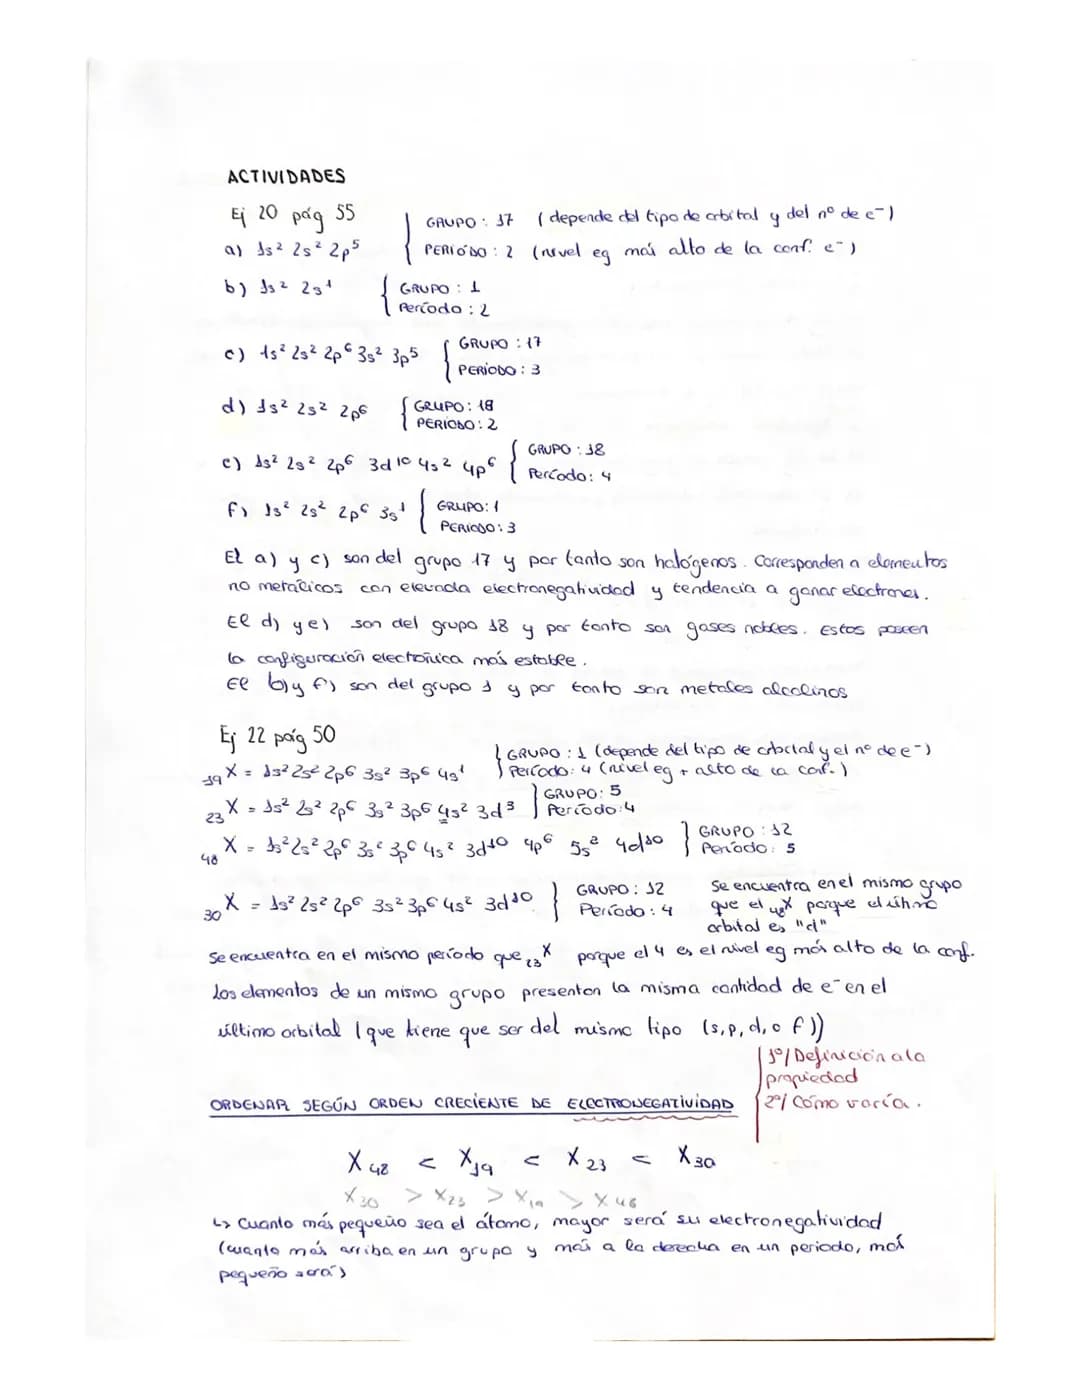 ACTIVIDADES
Ej 20 pág 55
a) 1s² 2s² 2p⁵ { GRUPO: 17 (depende del tipo de orbital y del nº de e⁻)
PERIÓDO: 2 (nivel eg más alto de la conf. e⁻)
b) 1s² 2s¹ { GRUPO: 1
Período: 2
c) 1s² 2s² 2p⁶ 3s² 3p⁵ { GRUPO: 17
PERÍODO: 3
d) 1s² 2s² 2p⁶ { GRUPO: 18
PERÍODO: 2
e) 1s² 2s² 2p⁶ 3d¹⁰ 4s² 4p⁶ { GRUPO: 18
Período: 4
f) 1s² 2s² 2p⁶ 3s¹ { GRUPO: 1
PERIODO: 3
El a) y c) son del grupo 17 y por tanto son halógenos. Corresponden a elementos
no metálicos con elevada electronegatividad y tendencia a ganar electrones.
El d) y e) son del grupo 18 y por tanto son gases nobles. Estos poseen
la configuración electrónica más estable.
El b) y f) son del grupo 1 y por tanto son metales alcalinos
Ej 22 pág 50
₁₉X = 1s² 2s² 2p⁶ 3s² 3p⁶ 4s¹ { GRUPO: 1 (depende del tipo de orbital y el nº de e⁻)
Período: 4 (nivel eg + alto de la conf.)
₂₃X = 1s² 2s² 2p⁶ 3s² 3p⁶ 4s² 3d³ } GRUPO: 5
Período: 4
₄₈X = 1s² 2s² 2p⁶ 3s² 3p⁶ 4s² 3d¹⁰ 4p⁶ 5s² 4d¹⁰ } GRUPO: 12
Período: 5
₃₀X = 1s² 2s² 2p⁶ 3s² 3p⁶ 4s² 3d¹⁰ } GRUPO: 12
Período: 4
Se encuentra en el mismo grupo
que el ₄₈X porque el último
orbital es "d"
Se encuentra en el mismo período que ₂₃X porque el 4 es el nivel eg más alto de la conf.
Los elementos de un mismo grupo presentan la misma cantidad de e⁻ en el
último orbital (que tiene que ser del mismo tipo (s, p, d, o f))
1º/ Definición a la
propiedad
2º/ Cómo varía.
ORDENAR SEGÚN ORDEN CRECIENTE DE ELECTRONEGATIVIDAD
X₄₈ < X₁₉ < X₂₃ < X₃₀
X₃₀ > X₂₃ > X₁₉ > X₄₈
↳ Cuanto más pequeño sea el átomo, mayor será su electronegatividad
(cuanto más arriba en un grupo y más a la derecha en un periodo, más
pequeño será)